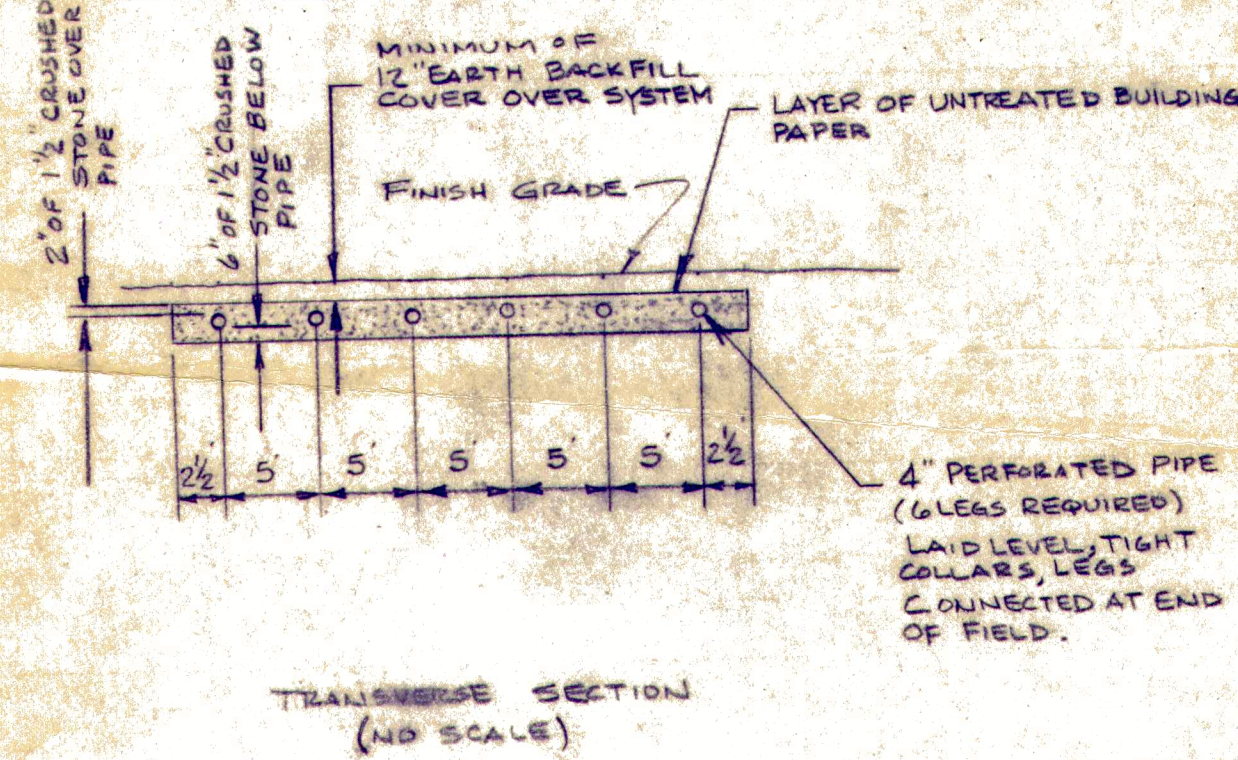 2" OF 1 1/2" CRUSHED
STONE OVER
PIPE
6" OF 1 1/2" CRUSHED
STONE BELOW
PIPE
MINIMUM OF
12" EARTH BACKFILL
COVER OVER SYSTEM
LAYER OF UNTREATED BUILDING
PAPER
FINISH GRADE
2 1/2' 5' 5' 5' 5' 5' 2 1/2'
4" PERFORATED PIPE
(6 LEGS REQUIRED)
LAID LEVEL, TIGHT
COLLARS, LEGS
CONNECTED AT END
OF FIELD.
TRANSVERSE SECTION
(NO SCALE)